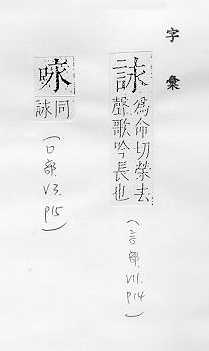 字彙
詠
爲命切榮去
聲歌吟長也
(言部. V11. P14)
咏
同
詠
(口部. V3. P15)